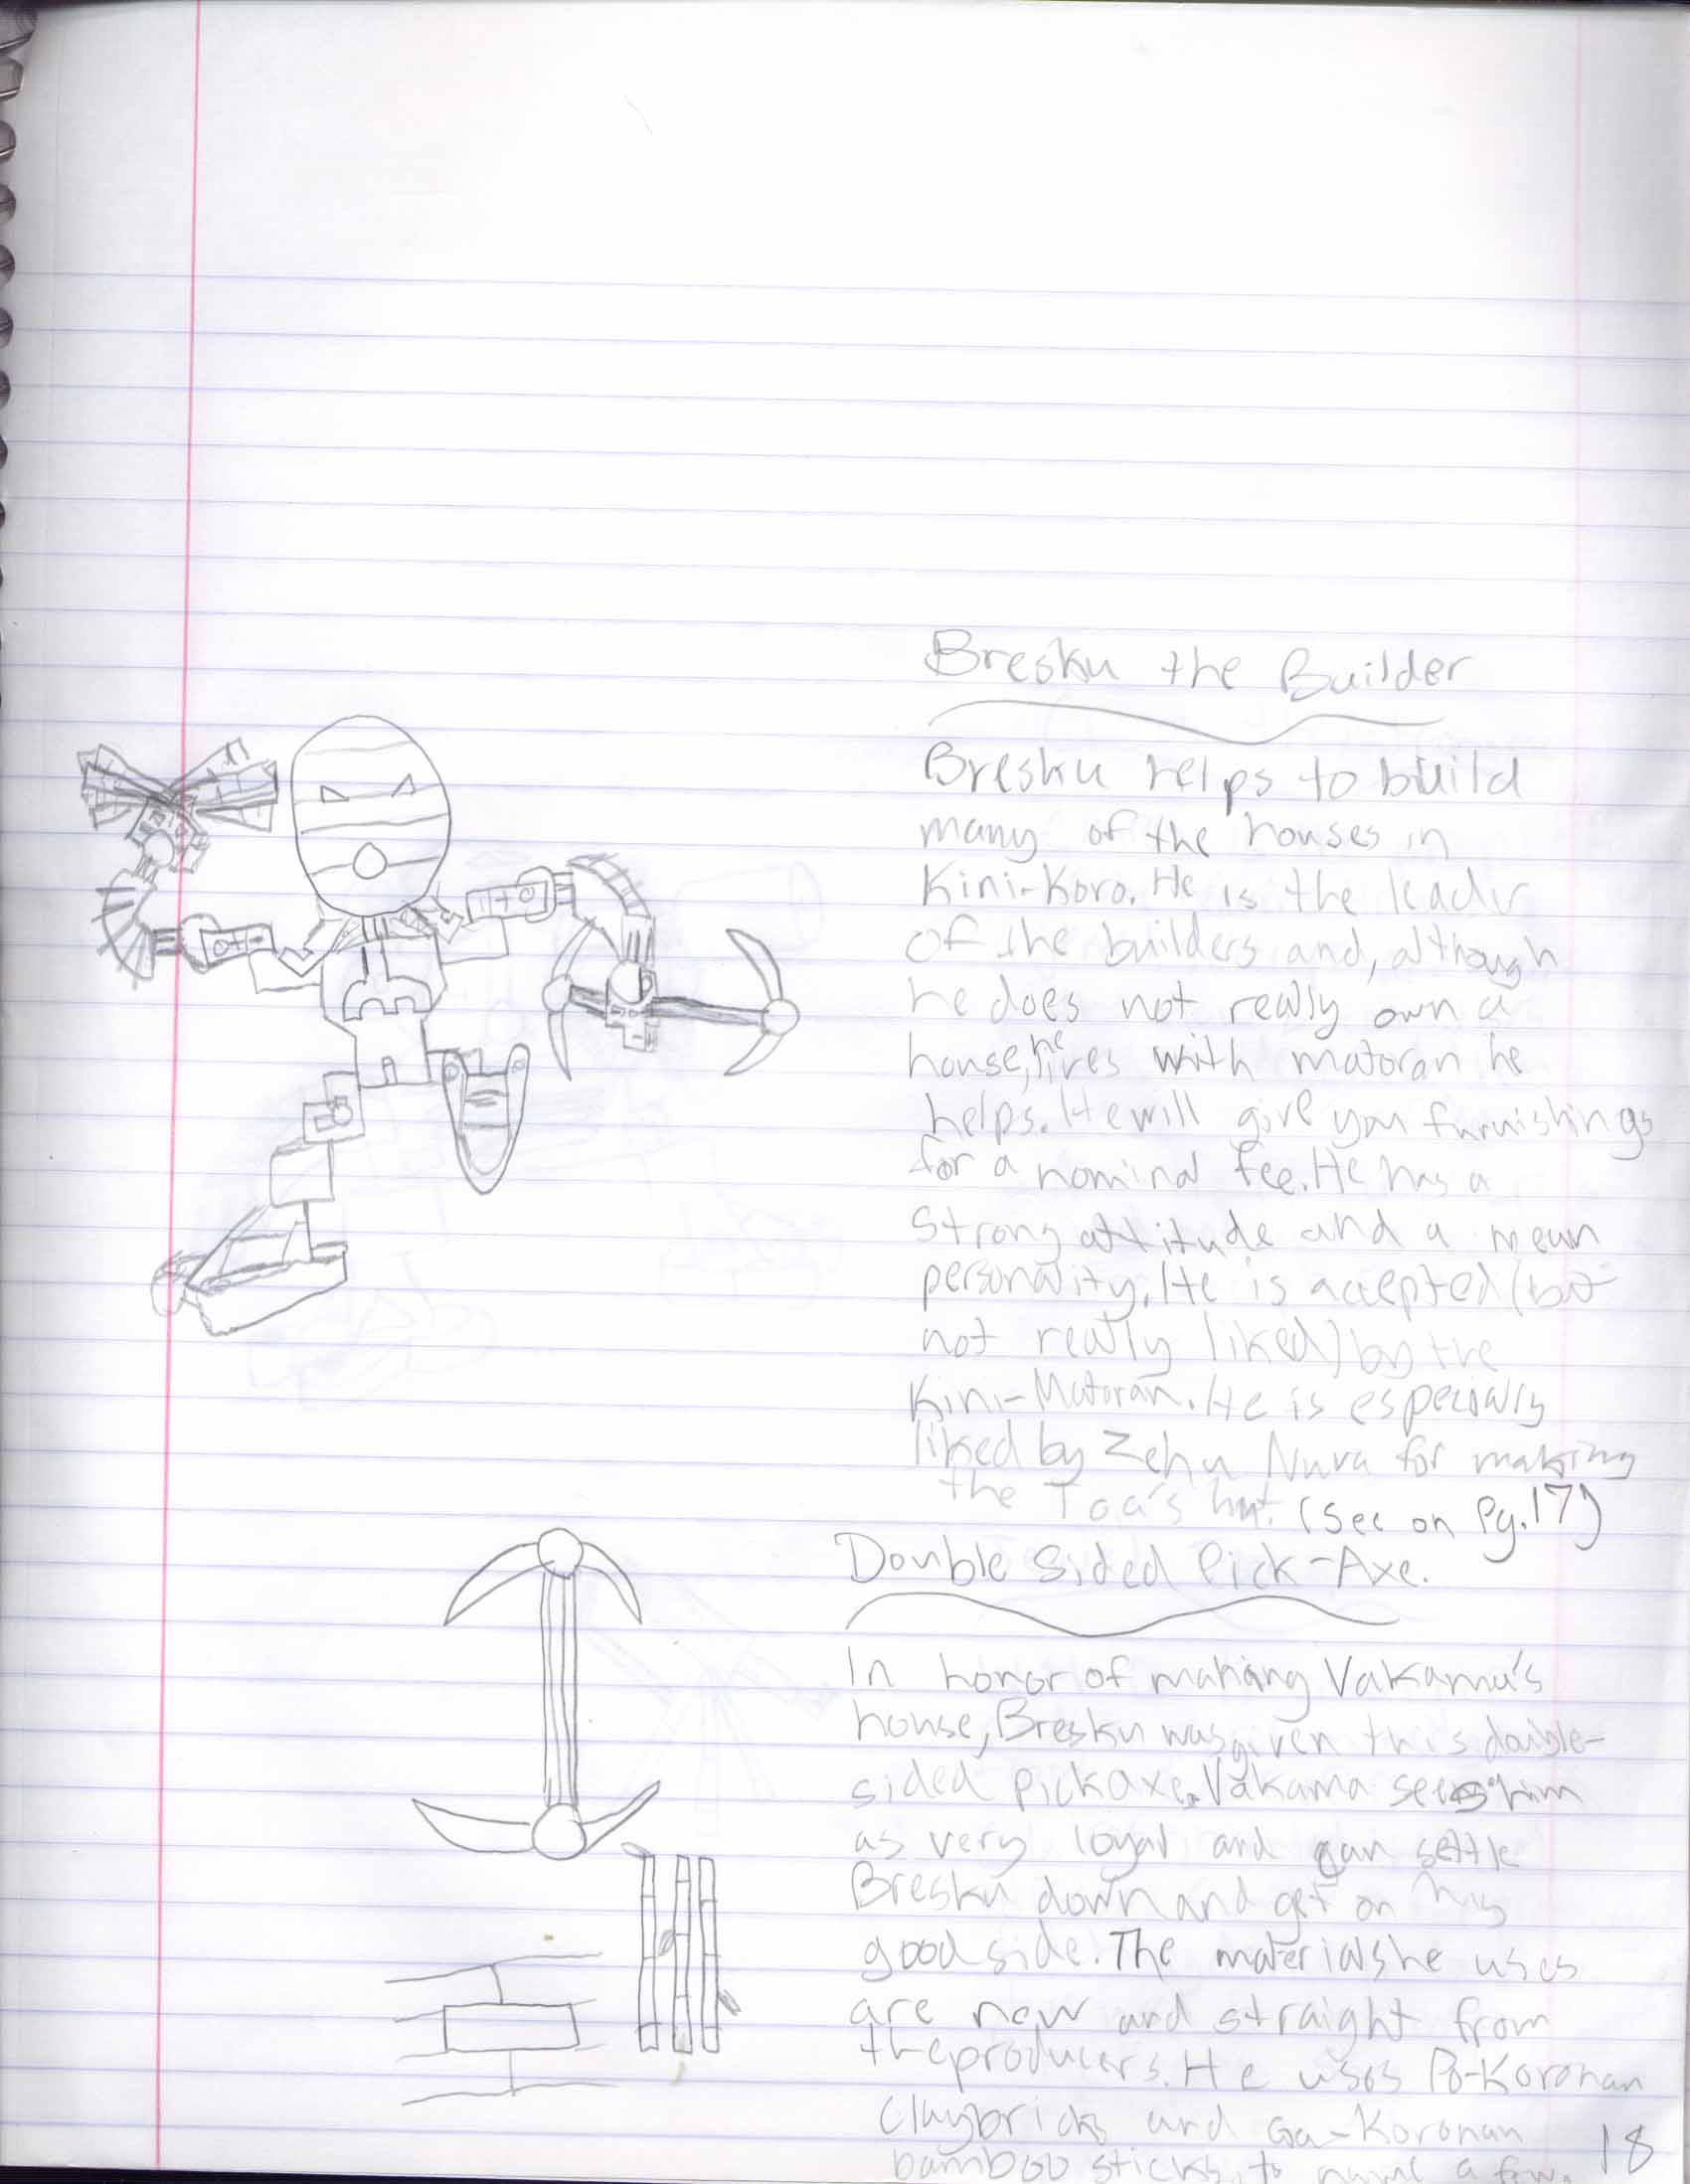 Bresku the Builder
Bresku helps to build
many of the houses in
Kini-Koro. He is the leader
of the builders and, although
he does not really own a
house, he lives with matoran he
helps. He will give you furnishings
for a nominal fee. He has a
strong attitude and a mean
personality. He is accepted (but
not really liked) by the
Kini-Matoran. He is especially
liked by Zehu Nuva for making
the Toa's hut. (See on Pg. 17)
Double Sided Pick-Axe.
In honor of making Vakama's
house, Bresku was given this double-
sided pickaxe. Vakama sees him
as very loyal and can settle
Bresku down and get on his
good side. The materials he uses
are new and straight from
the producers. He uses Po-Koronan
claybricks and Ga-Koronan
bamboo sticks, to name a few.
18